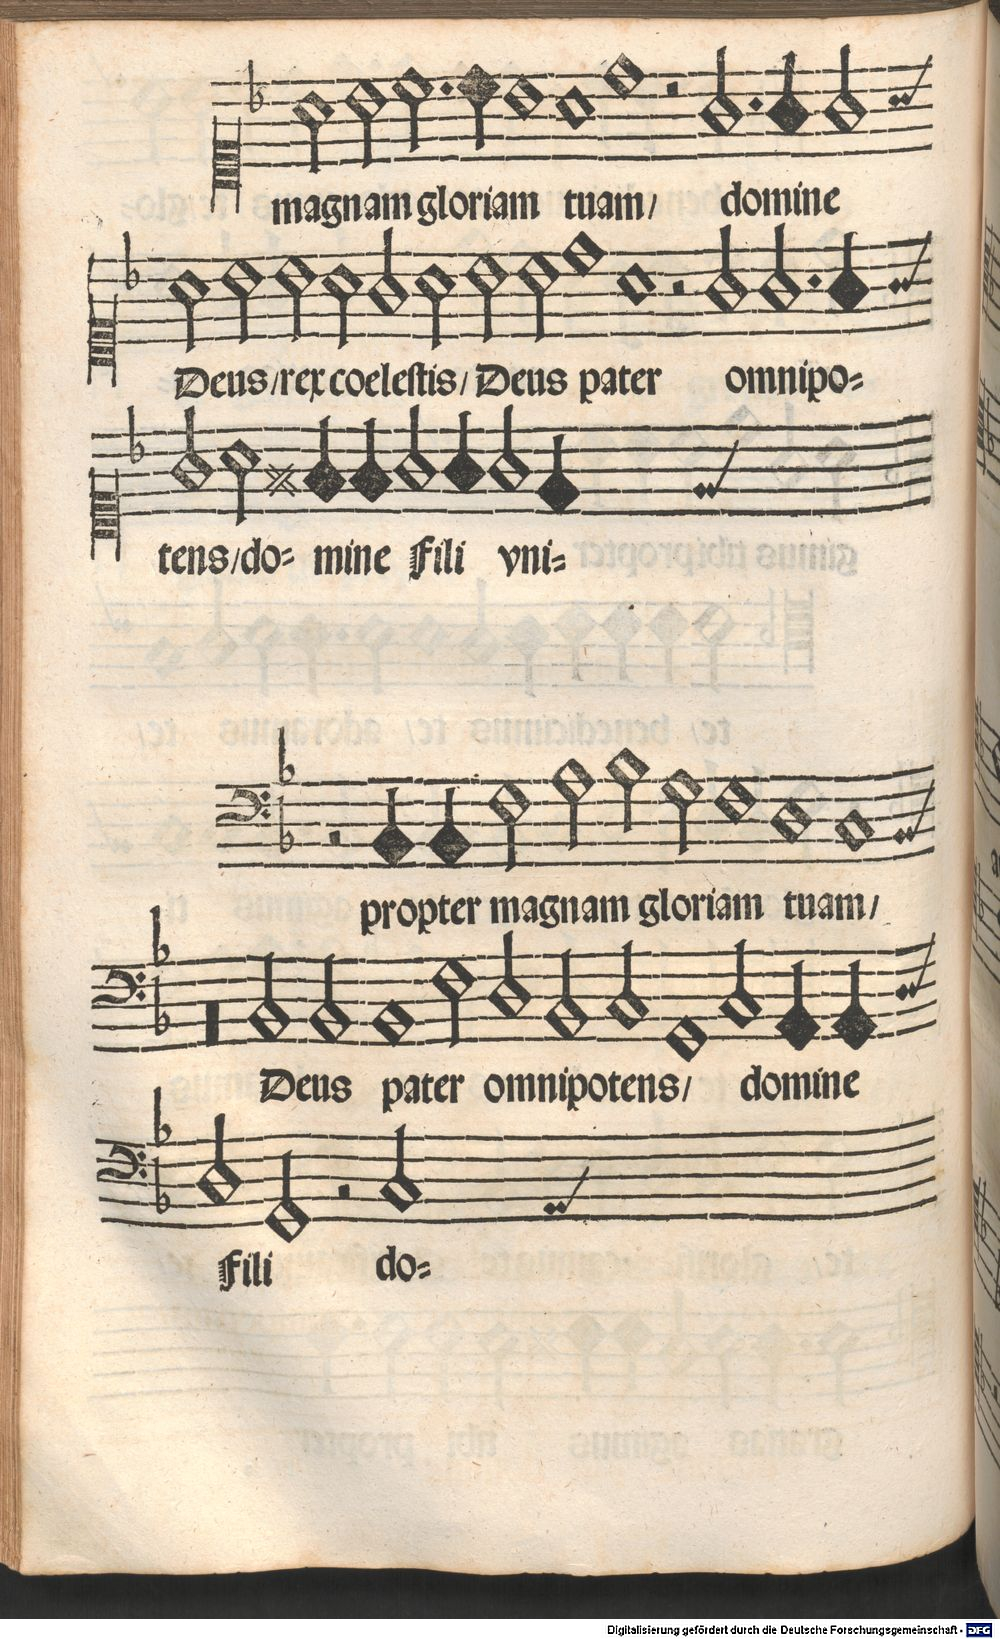 magnam gloriam tuam/ domine
Deus/rex coelestis/ Deus pater omnipo=
tens/do= mine Fili vni=
propter magnam gloriam tuam/
Deus pater omnipotens/ domine
Fili do=
Digitalisierung gefördert durch die Deutsche Forschungsgemeinschaft - DFG